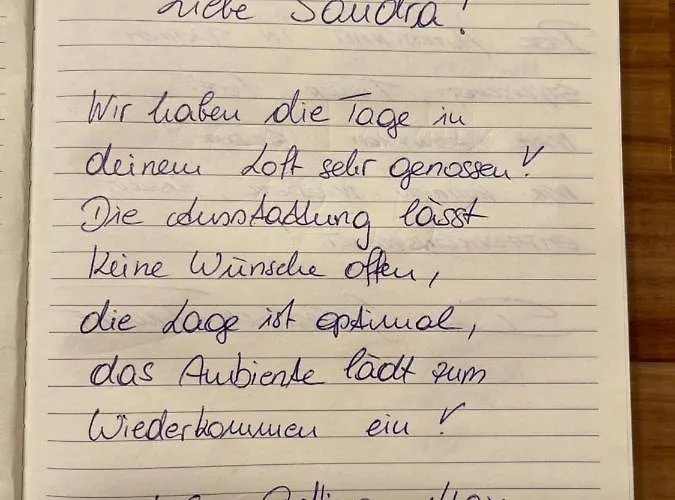 Liebe Sandra!
Wir haben die Tage in
deinem Loft sehr genossen!
Die Ausstattung lässt
keine Wünsche offen,
die Lage ist optimal,
das Ambiente lädt zum
Wiederkommen ein!